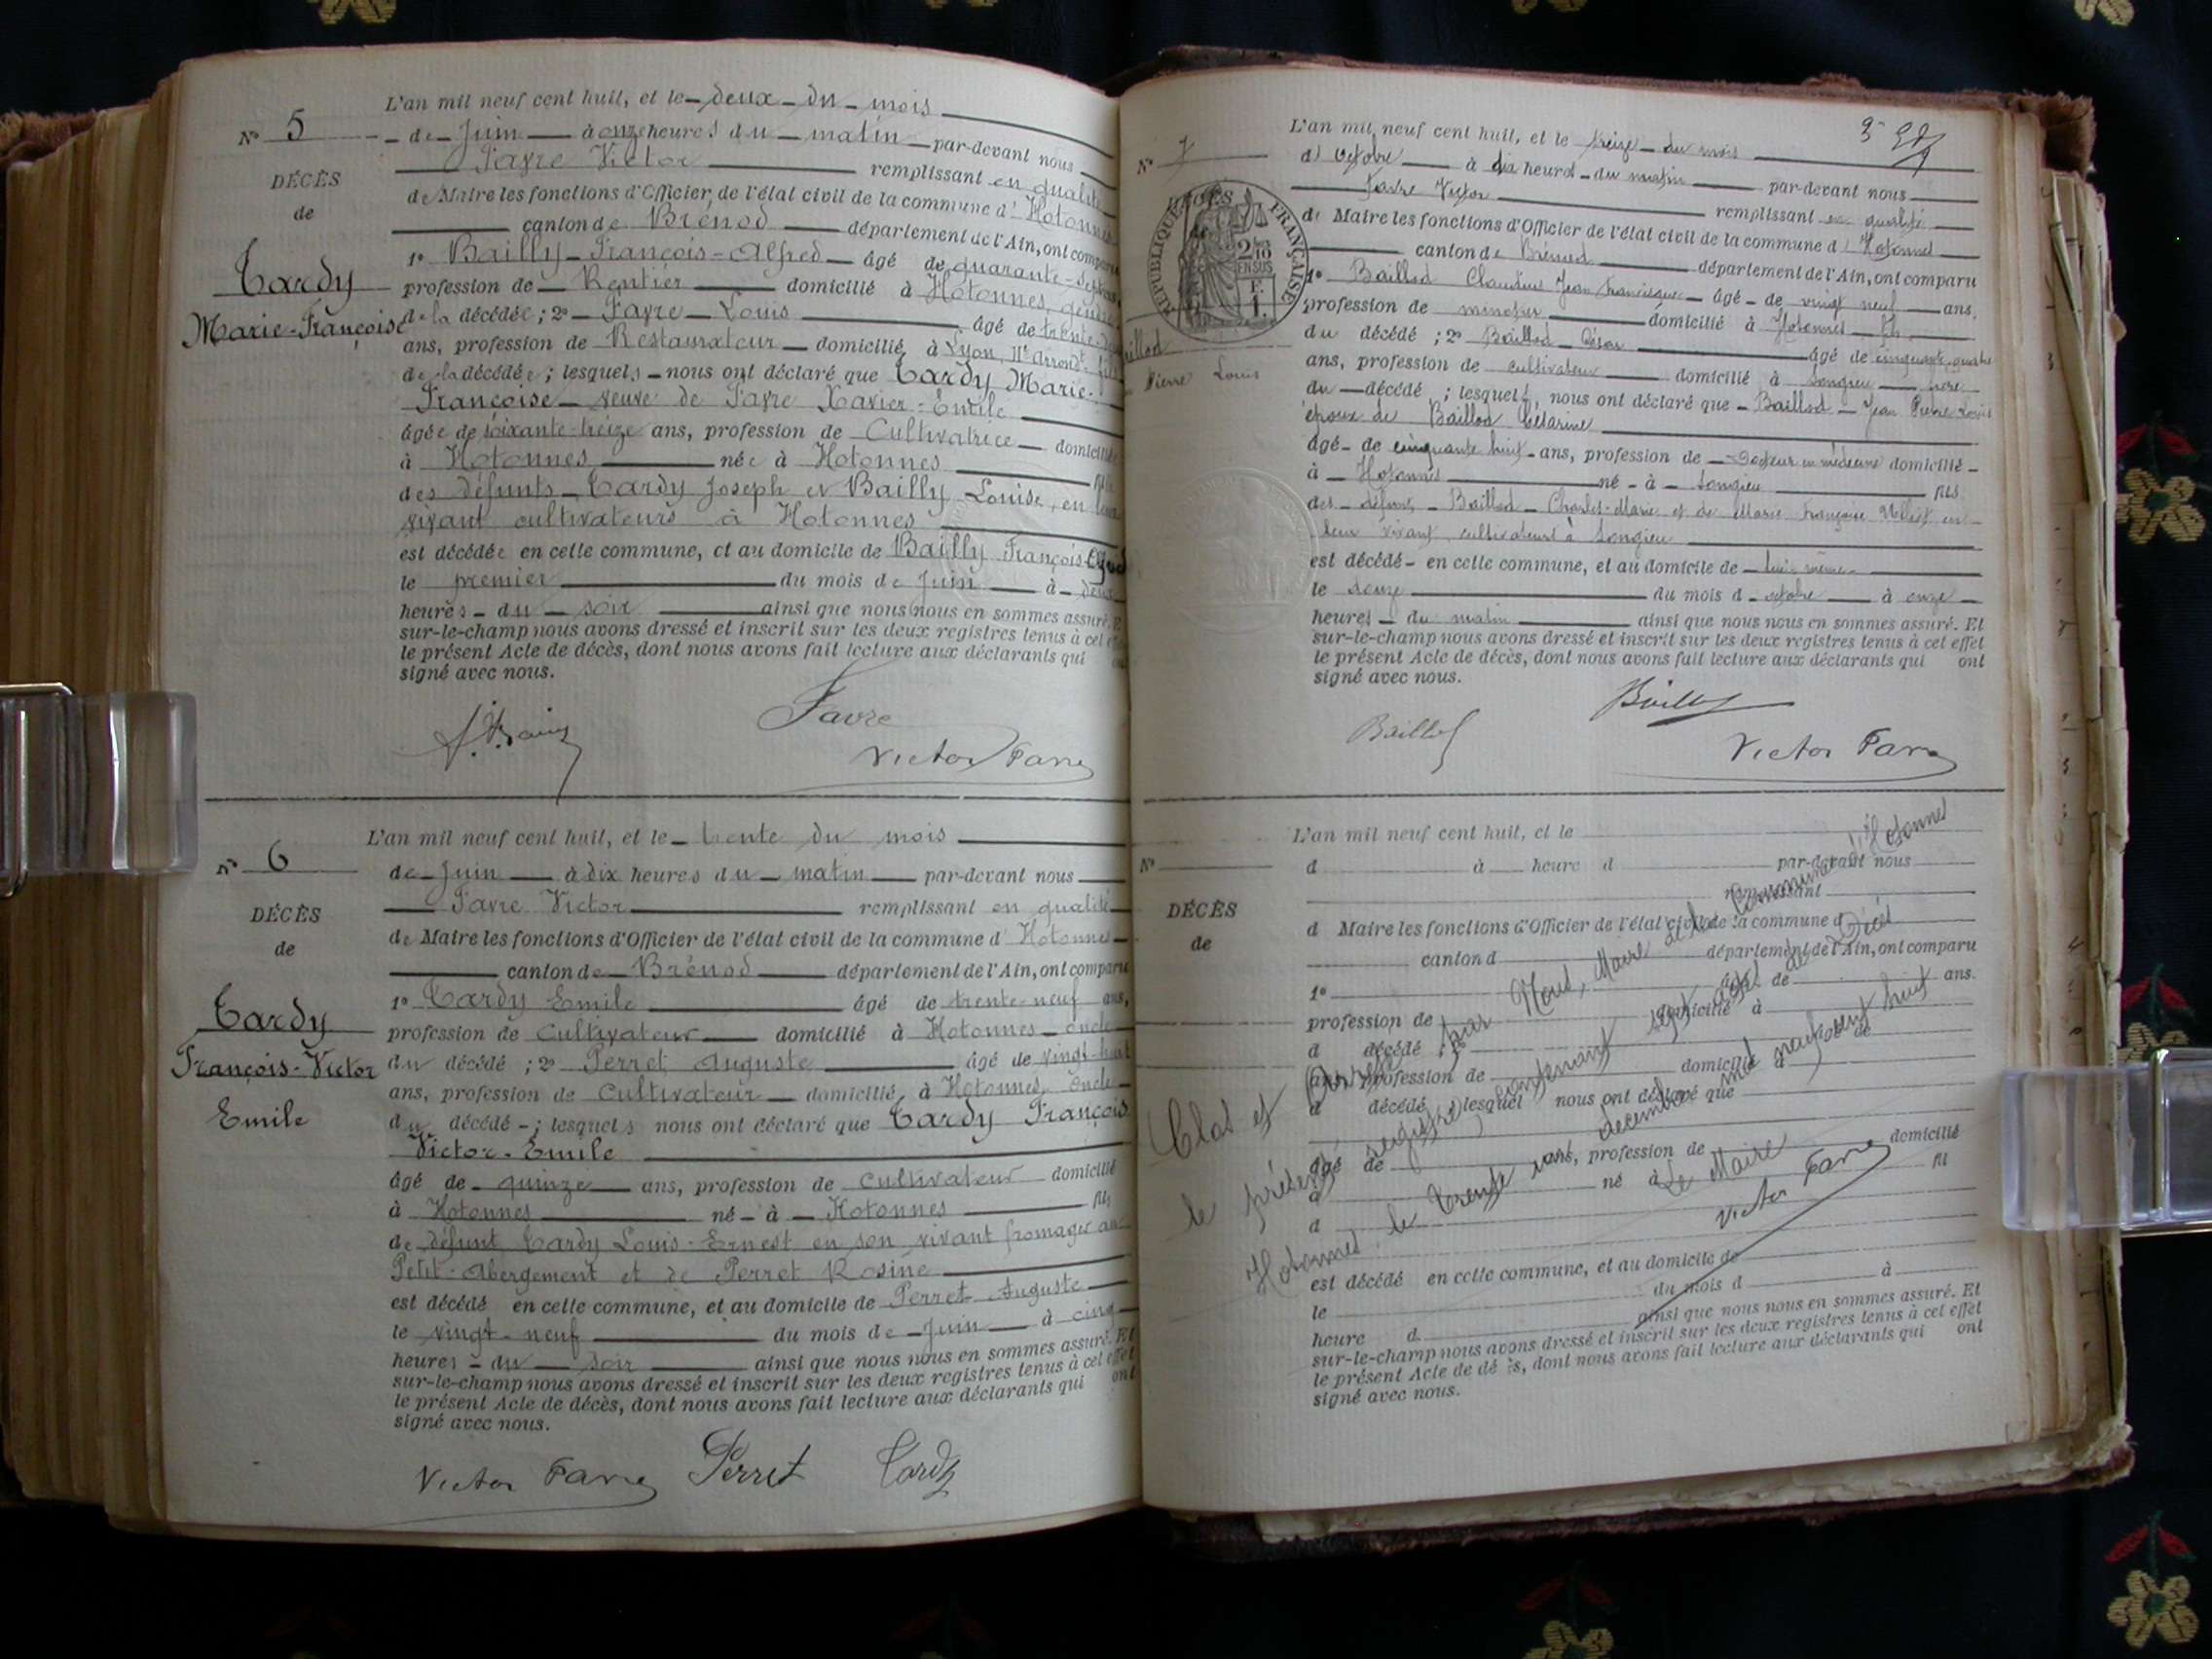 N° 5
DÉCÈS
de
Tardy
Marie-Françoise
L'an mil neuf cent huit, et le deux du mois
de Juin à onze heures du matin par-devant nous
Favre Victor remplissant en qualité
de Maire les fonctions d'Officier de l'état civil de la commune d'Hotonnes
canton de Brénod département de l'Ain, ont comparu
1° Bailly François-Alfred âgé de quarante-sept ans,
profession de Rentier domicilié à Hotonnes, gendre
de la décédée ; 2° Favre Louis âgé de trente
ans, profession de Restaurateur domicilié à Lyon, IIe Arrondt fils
de la décédée ; lesquels nous ont déclaré que Tardy Marie-
Françoise veuve de Favre Xavier-Emile
âgée de soixante-treize ans, profession de Cultivatrice domiciliée
à Hotonnes née à Hotonnes fille
des défunts Tardy Joseph et Bailly Louise, en leur
vivant cultivateurs à Hotonnes
est décédée en celle commune, et au domicile de Bailly François-Alfred
le premier du mois de Juin à deux
heures du soir ainsi que nous nous en sommes assuré. Et
sur-le-champ nous avons dressé et inscrit sur les deux registres tenus à cet effet
le présent Acte de décès, dont nous avons fait lecture aux déclarants qui ont
signé avec nous.
Favre
Victor Favre
N° 6
DÉCÈS
de
Tardy
François-Victor
Emile
L'an mil neuf cent huit, et le trente du mois
de Juin à dix heures du matin par-devant nous
Favre Victor remplissant en qualité
de Maire les fonctions d'Officier de l'état civil de la commune d'Hotonnes
canton de Brénod département de l'Ain, ont comparu
1° Tardy Emile âgé de trente-neuf ans,
profession de Cultivateur domicilié à Hotonnes oncle
du décédé ; 2° Perret Auguste âgé de vingt-huit
ans, profession de Cultivateur domicilié à Hotonnes, oncle
du décédé ; lesquels nous ont déclaré que Tardy François
Victor-Emile
âgé de quinze ans, profession de cultivateur domicilié
à Hotonnes né à Hotonnes fils
de défunt Tardy Louis-Ernest en son vivant fromager au
Petit-Abergement et de Perret Rosine
est décédé en celle commune, et au domicile de Perret Auguste
le vingt-neuf du mois de Juin à cinq
heures du soir ainsi que nous nous en sommes assuré. Et
sur-le-champ nous avons dressé et inscrit sur les deux registres tenus à cet effet
le présent Acte de décès, dont nous avons fait lecture aux déclarants qui ont
signé avec nous.
Victor Favre Perret Tardy
N° 7
DÉCÈS
RÉPUBLIQUE FRANÇAISE
2/10 EN SUS
F. 1.
Baillod
Pierre Louis
L'an mil neuf cent huit, et le treize du mois
d'octobre à dix heures du matin par-devant nous
Favre Victor remplissant en qualité
de Maire les fonctions d'Officier de l'état civil de la commune d'Hotonnes
canton de Brénod département de l'Ain, ont comparu
1° Baillod Claudius Jean Francisque âgé de vingt neuf ans,
profession de minotier domicilié à Hotonnes fils
du décédé ; 2° Baillod César âgé de cinquante-quatre
ans, profession de cultivateur domicilié à Songieu frère
du décédé ; lesquels, nous ont déclaré que Baillod Jean Pierre Louis
époux de Baillod Césarine
âgé de cinquante huit ans, profession de Docteur en médecine domicilié
à Hotonnes né à Songieu fils
des défunts Baillod Charles-Marie et de Marie Françoise en
leur vivant cultivateurs à Songieu
est décédé en celle commune, et au domicile de lui-même
le douze du mois d'octobre à onze
heures du matin ainsi que nous nous en sommes assuré. Et
sur-le-champ nous avons dressé et inscrit sur les deux registres tenus à cet effet
le présent Acte de décès, dont nous avons fait lecture aux déclarants qui ont
signé avec nous.
Baillod Baillod
Victor Favre
N°
DÉCÈS
de
L'an mil neuf cent huit, et le
d à heure d par-devant nous
remplissant
d Maire les fonctions d'Officier de l'état civil de la commune d
canton d département de l'Ain, ont comparu
1° âgé de ans,
profession de domicilié à
d décédé ; 2°
ans, profession de domicilié à âgé de
d décédé ; lesquel nous ont déclaré que
âgé de ans, profession de domicilié
à né à fil
d
est décédé en celle commune, et au domicile de
le du mois d à
heure d ainsi que nous nous en sommes assuré. Et
sur-le-champ nous avons dressé et inscrit sur les deux registres tenus à cet effet
le présent Acte de décès, dont nous avons fait lecture aux déclarants qui ont
signé avec nous.
Clos et arrêté par Nous, Maire de la Commune d'Hotonnes
le présent registre, contenant sept actes de Décès
Hotonnes, le trente un décembre mil neuf cent huit
Le Maire
Victor Favre